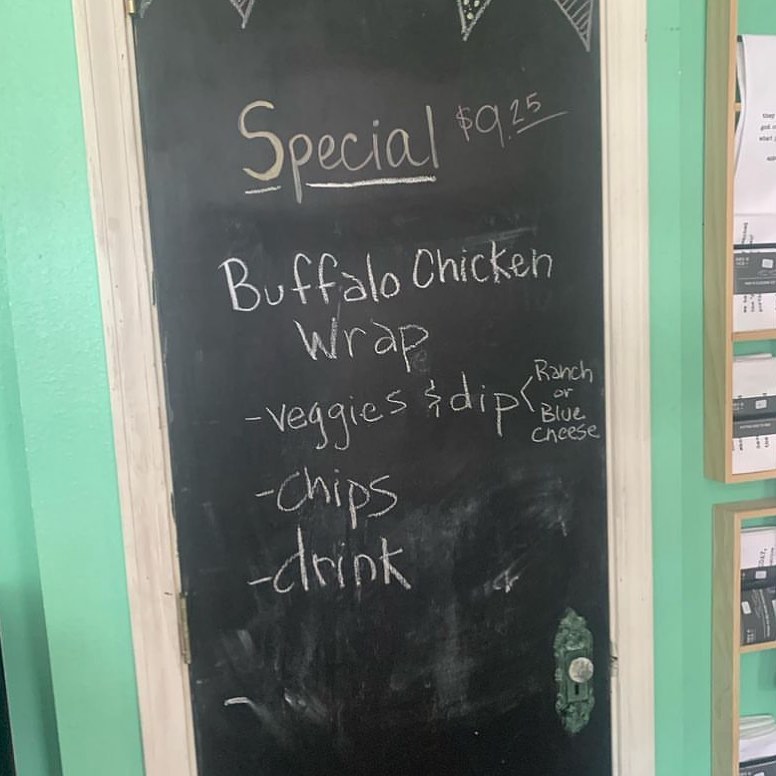 Special $9.25
Buffalo Chicken
Wrap
-veggies & dip < Ranch
or
Blue
cheese
-chips
-drink
-